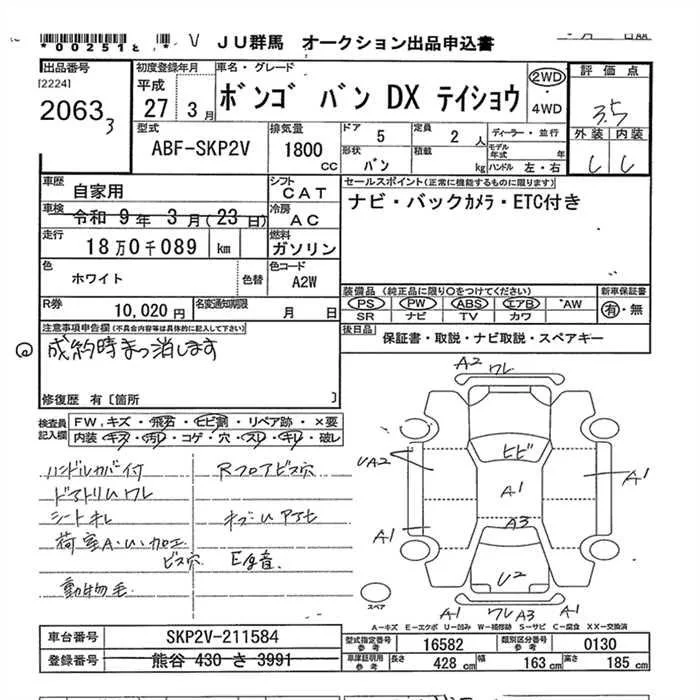 *00251
V JU群馬 オークション出品申込書
出品番号
[2224]
2063 3
初度登録年月
平成
27 3月
車名・グレード
ボンゴ バン DX テイショウ
2WD
4WD
評価点
3.5
外装 内装
C C
型式
ABF-SKP2V
排気量
1800 CC
ドア 5
定員 2人
ディーラー・並行
形状 バン
積載 kg
モデル年式 年
ハンドル 左・右
車歴 自家用
シフト CAT
セールスポイント(正常に機能するものに限ります)
ナビ・バックカメラ・ETC付き
車検 令和 9年 3月(23日)
冷房 AC
走行 18万0千089 km
燃料 ガソリン
色 ホワイト
色替
色コード A2W
装備品(純正品に限り○をつけてください)
新車保証書
PS PW ABS エアB AW
SR ナビ TV カワ
有・無
R券 10,020円
名変通知期限 月 日
後日品 保証書・取説・ナビ取説・スペアキー
注意事項申告欄(不具合内容等は具体的に記入して下さい)
成約時まっ消します
修復歴 有〔箇所 〕
検査員記入欄
FW,キズ・飛石・ヒビ割・リペア跡・×要
内装・キズ・汚レ・コゲ・穴・スレ・キレ・破レ
ハンドルカバー付 Rフロアビス穴
ドアトリムワレ
シートキレ
荷室A・U・加工
ビス穴 E音
動物毛
A2 ワレ
UA2
ヒビ
A1
A1
A3
A1
U2
A1 ワレ A3 A1
スペア
A-キズ E-エクボ U-凹み W-補修跡 S-サビ C-腐食 XX-交換済
車台番号 SKP2V-211584
登録番号 熊谷 430 さ 3991
型式指定番号 参考 16582
類別区分番号 参考 0130
車庫証明用 参考 長さ 428 cm 幅 163 cm 高さ 185 cm